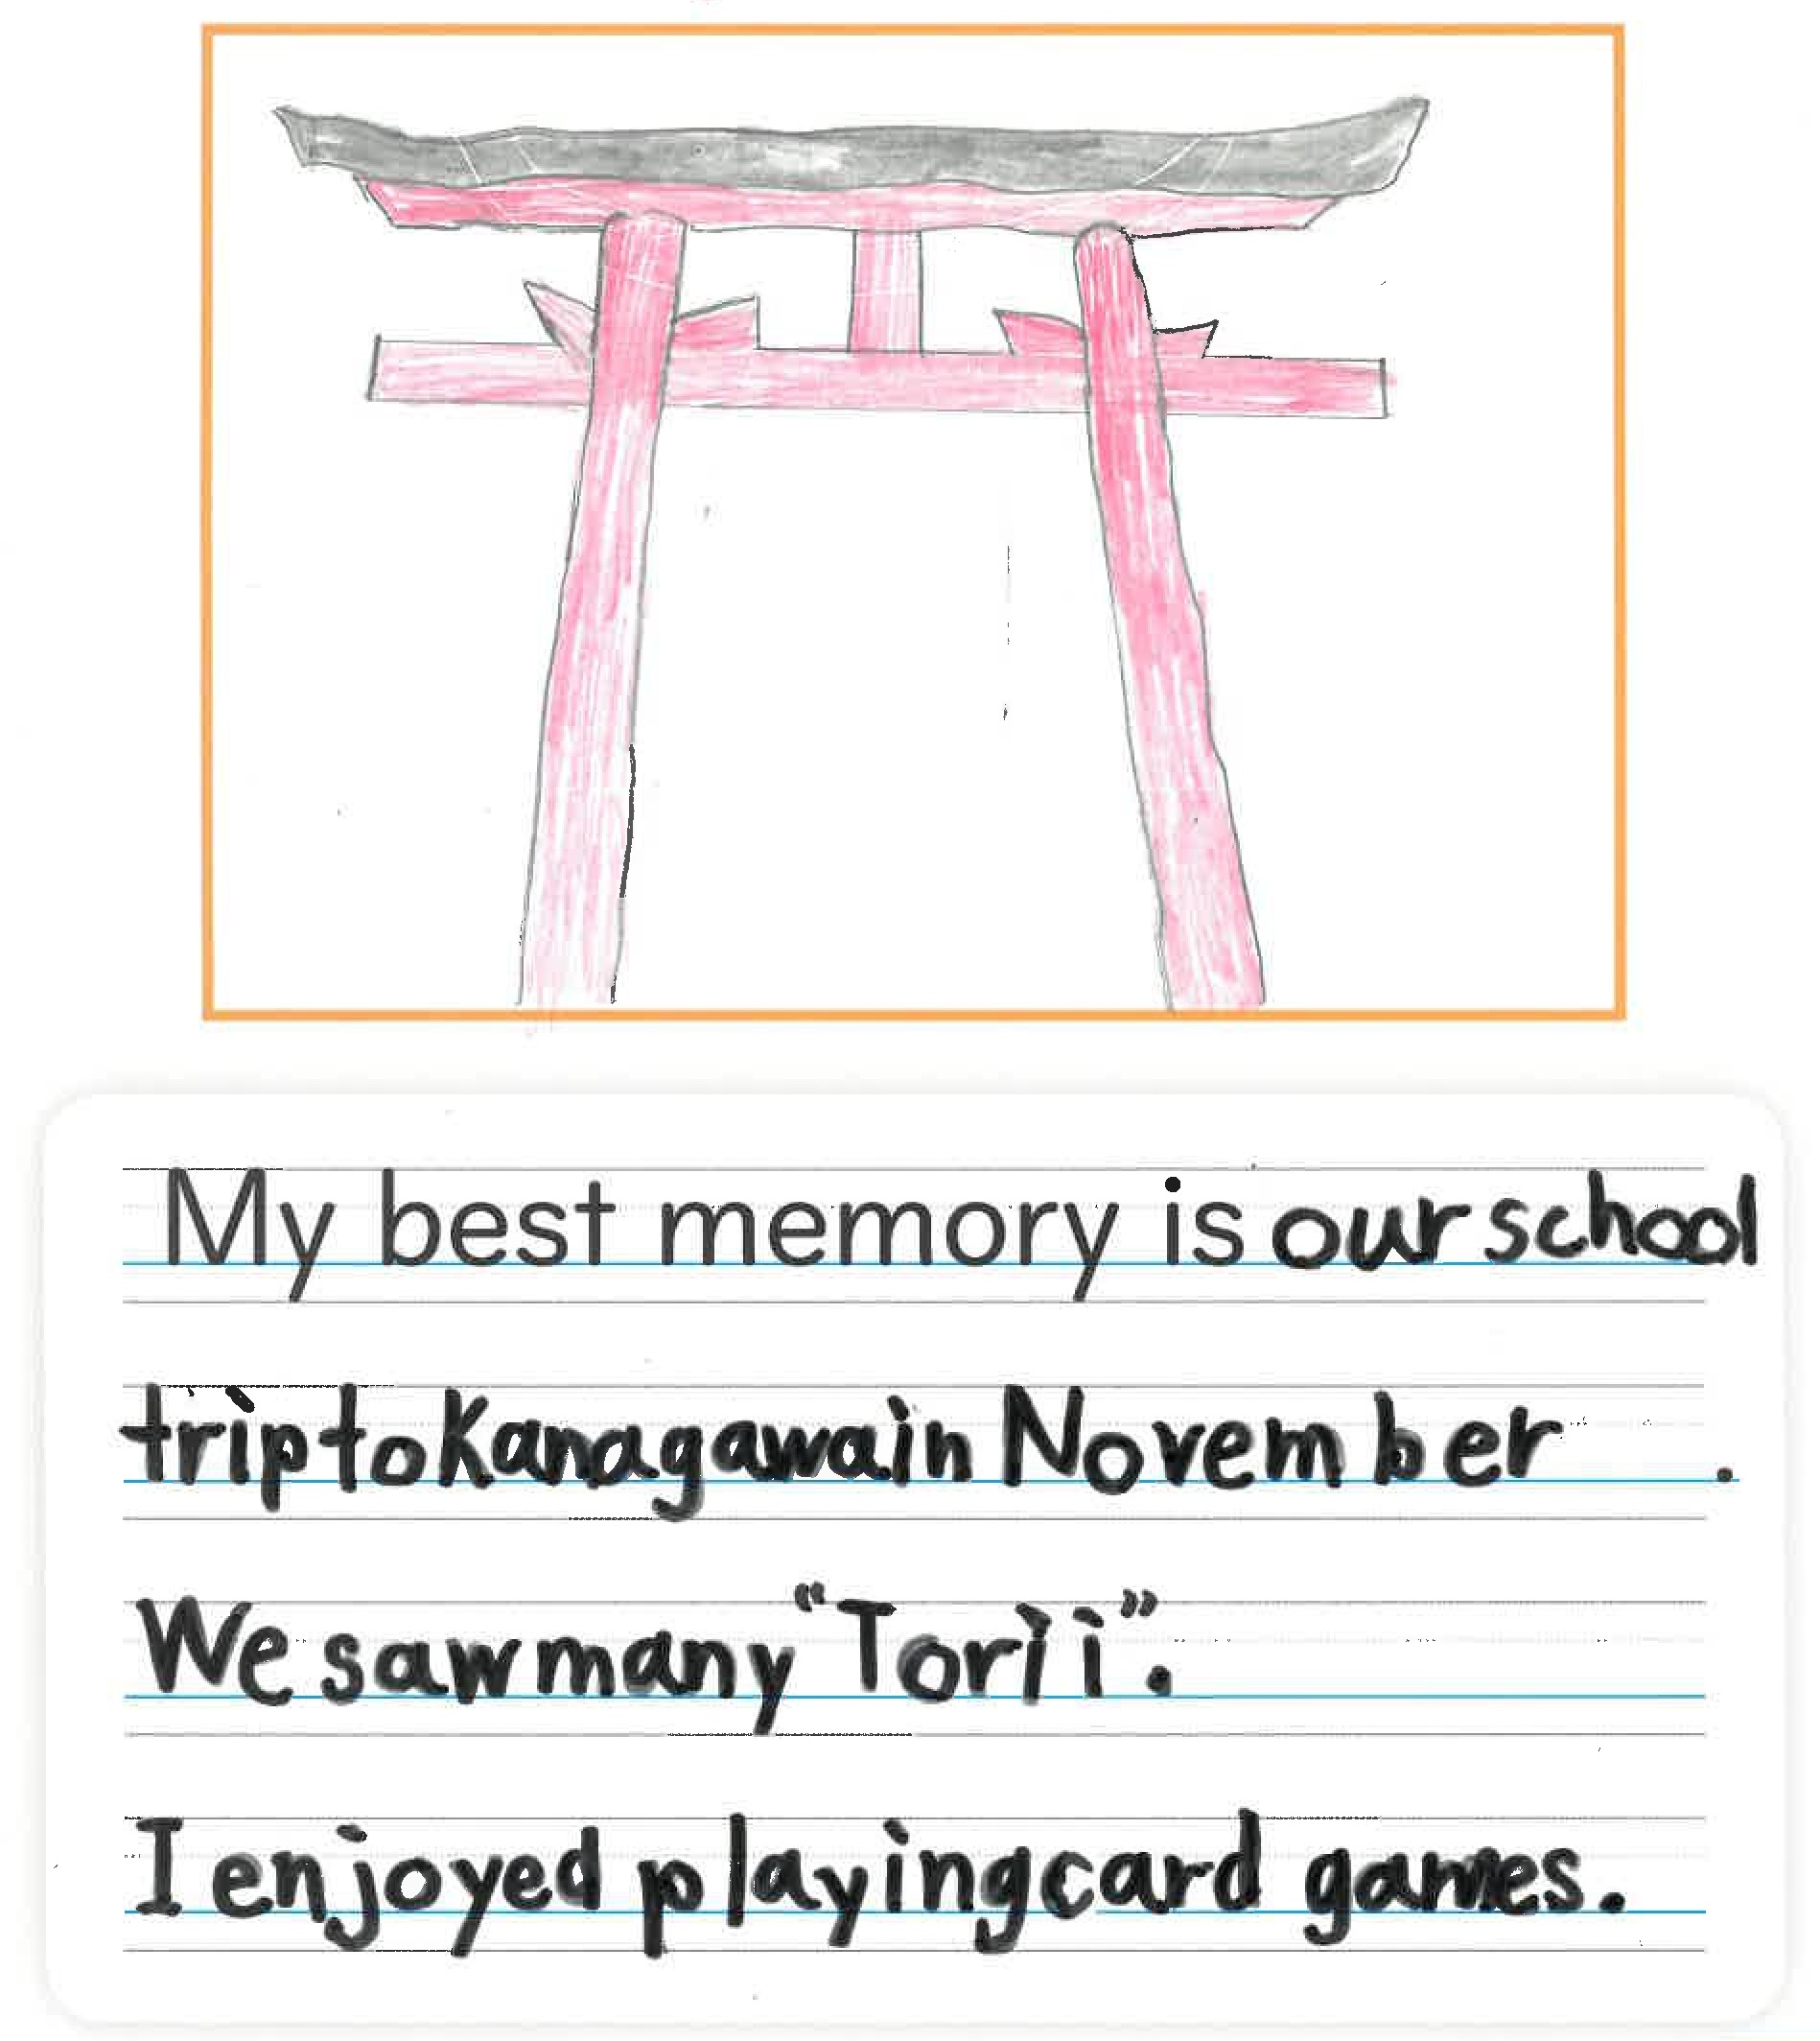 My best memory is our school
trip to Kanagawa in November .
We saw many “Torii”.
I enjoyed playing card games.